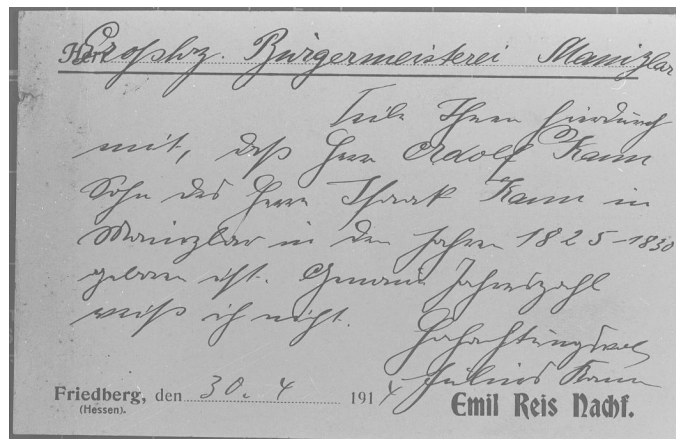 Herr Großhz. Bürgermeisterei Mainzlar
Teile Ihnen hierdurch
mit, daß Herr Adolf Kann
Sohn des Herrn Isaak Kann in
Mainzlar in den Jahren 1825-1830
geboren ist. Genaue Jahreszahl
weiß ich nicht.
Hochachtungsvoll
Julius Kann
Friedberg, den 30. 4 1914
(Hessen).
Emil Reis Nachf.